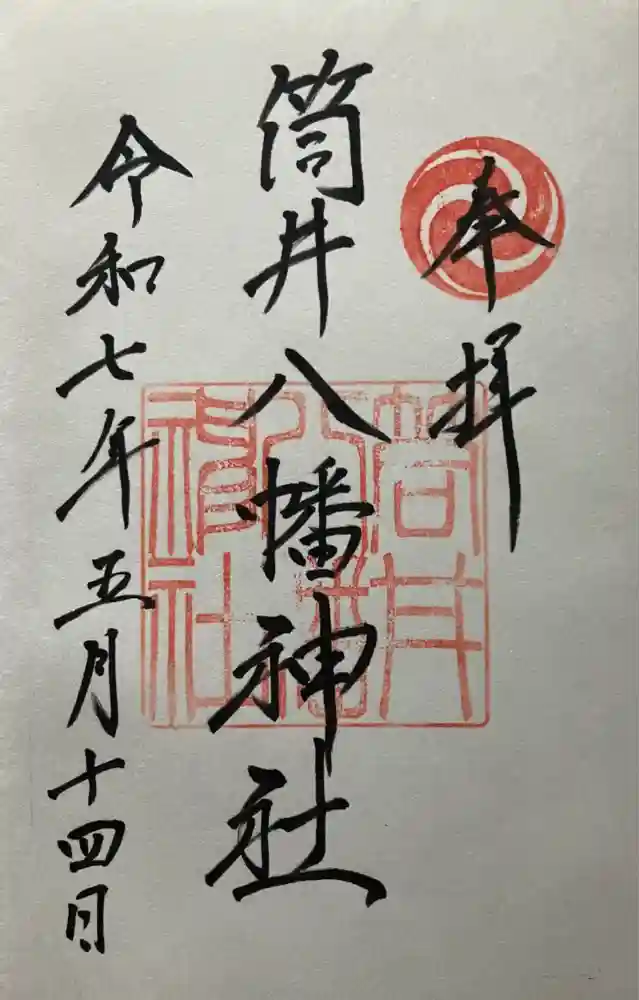 奉拝
筒井八幡神社
筒井八幡神社
令和七年五月十四日